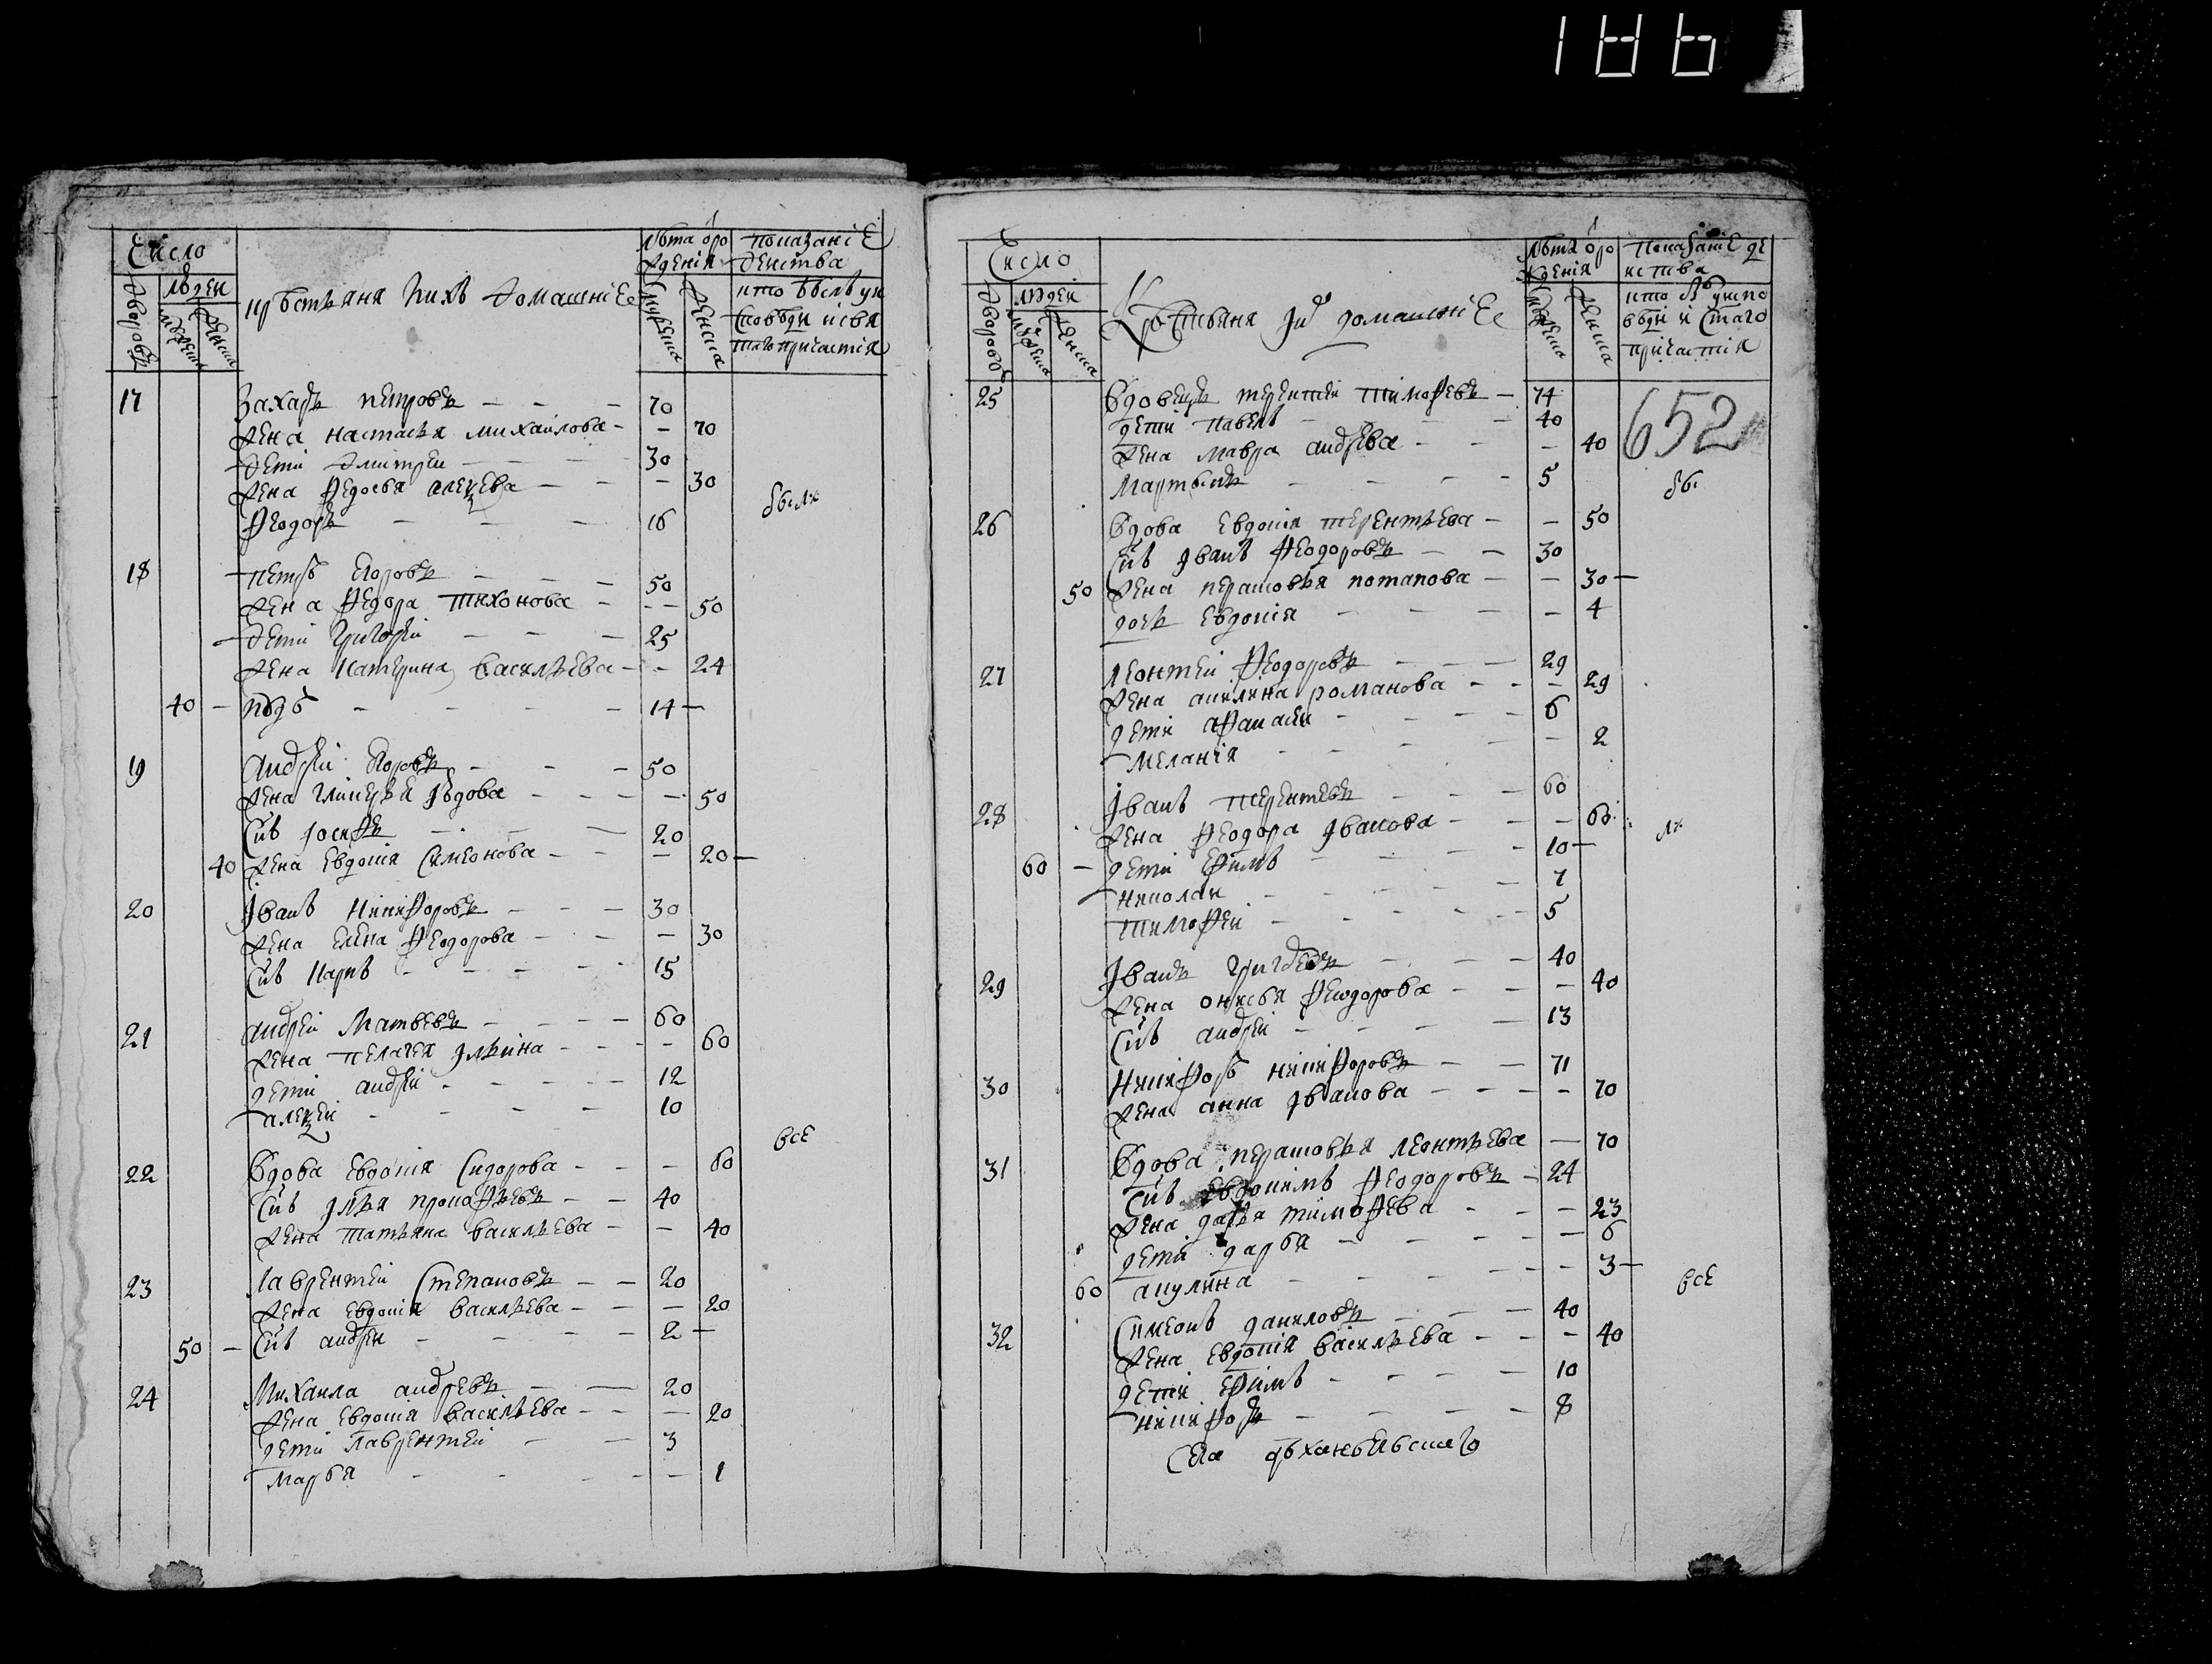 186
Число
дворовъ
людей
мужеска
женска
крѣстьяня и ихъ домашніе
лѣта от рождения
мужеска
женска
показаніе
действа
кто былъ у исповѣди и святаго причастия
17 Захаръ петровъ — — — 70
жена настасья михаилова — — 70
дети дмитреи — — — 30
жена федосья алекѣева — — — 30
феодоръ — — — 16
были
18 петръ егоровъ — — — 50
жена федора тихонова — — — 50
дети григорей — — — 25
жена катерина васильева — — 24
40 — — — — — 14 —
19 андрей егоровъ — — — 50
жена гликерья — — — — 50
снъ иосифъ — — — 20
40 жена евдокия симеонова — — — 20 —
20 Іванъ никифоровъ — — — 30
жена елена феодорова — — — 30
снъ карпъ — — — — 15
21 андрей матвеевъ — — — 60
жена пелагея ильина — — — — 60
дети андрей — — — — 12
алекѣей — — — 10
все
22 вдова евдокия сидорова — — — 60
снъ илья прокофьевъ — — 40
жена татьяна васильева — — 40
23 лаврентей степановъ — — 20
жена евдокия василѣева — — — 20
50 — снъ андрей — — — — 2 —
24 михаила андреевъ — — 20
жена евдокия василѣева — — — 20
дети лаврентей — — 3
марѳа — — — — — 1
Число
дворовъ
людей
мужеска
женска
Крѣстьяня и их домашние
лѣта от рождения
мужеска
женска
показание действа
кто былъ у исповѣди и святаго причастия
25 вдовецъ терентей тимофеевъ — 74
652
дети павелъ — — 40
жена мавра андреева — — — 40
мартынъ — — — — 5
бы
26 вдова евдокия терентьева — — 50
снъ іванъ феодоровъ — — 30
50 жена парасковья потапова — — 30 —
дочь евдокия — — — — 4
27 леонтей феодоровъ — — — 29
жена акилина романова — — — 29
дети афанасей — — — — 6
мелания — — — — — 2
28 іванъ терентьевъ — — — 60
жена феодора іванова — — — 60
ли
60 — дети ефимъ — — — — 10 —
николай — — — — 7
тимофей — — — — 5
29 іванъ — — — 40
жена онисья феодорова — — — 40
снъ андрей — — — — 13
30 никифоръ никифоровъ — — 71
жена анна іванова — — — — 70
31 вдова парасковья леонтьева — 70
снъ евдокимъ феодоровъ — 24
жена дарья тимофеева — — — 23
дети дарья — — — — — 6
60 акулина — — — — — 3 —
все
32 симеонъ даниловъ — — — 40
жена евдокия василѣева — — — 40
дети ефимъ — — — — 10
никифоръ — — — — 8
села архангѣльскаго